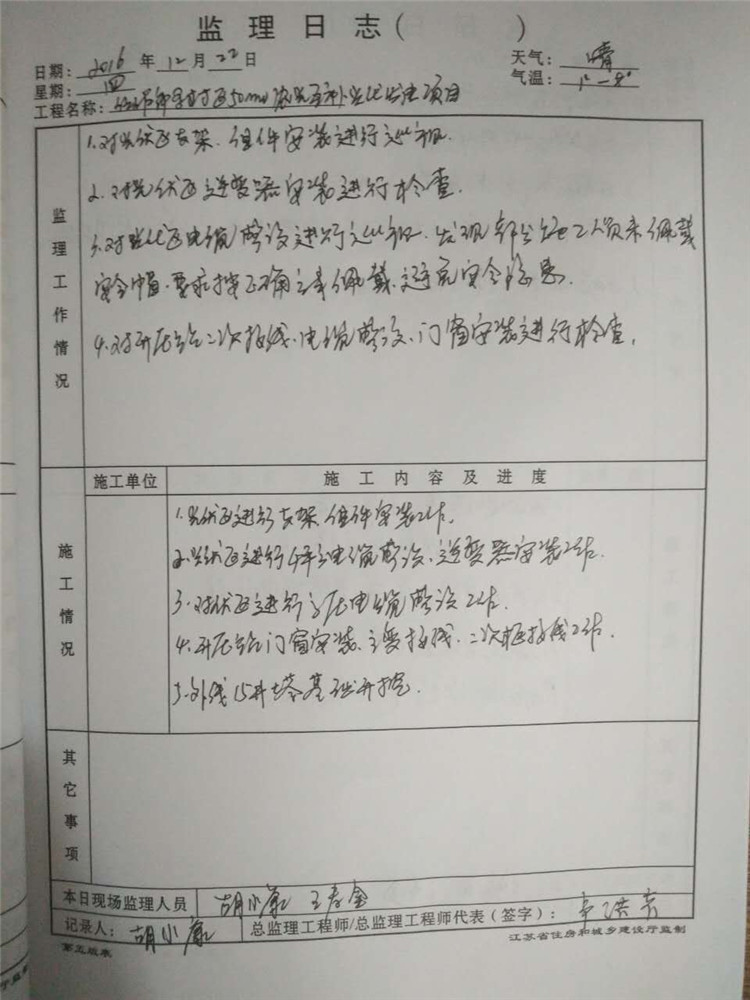 监理日志( )
日期: 2016 年 12 月 22 日 天气: 晴
星期: 四 气温: 1°-8°
工程名称: 50mw 渔光互补光伏发电项目
监理工作情况
1.对光伏区支架、组件安装进行巡视.
2.对光伏区逆变器安装进行检查.
3.对光伏区电缆敷设进行巡视.发现部分施工人员未佩戴
安全帽.要求按正确方式佩戴.避免安全隐患.
4.对升压站二次接线、电缆敷设、门窗安装进行检查.
施工情况
施工单位 施工内容及进度
1.光伏区进行支架、组件安装工作.
2.光伏区进行 电缆敷设、逆变器安装工作.
3.对伏区进行高压电缆敷设工作.
4.升压站门窗安装、主变接线、二次柜接线工作.
5.外线15井塔基础开挖.
其它事项
本日现场监理人员 胡小康
记录人: 胡小康 总监理工程师/总监理工程师代表(签字):
第五版表 江苏省住房和城乡建设厅监制